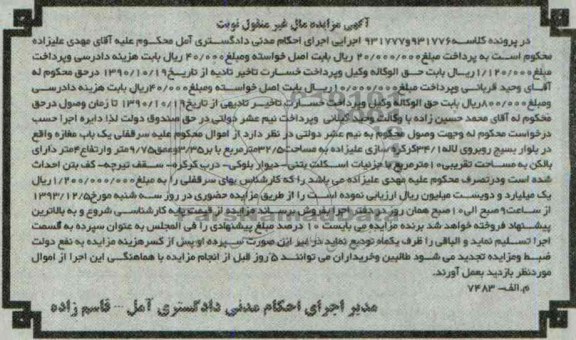 آگهی مزایده مال غیر منقول نوبت
در پرونده کلاسه ۹۳۱۷۷۶و۹۳۱۷۷۷ اجرایی اجرای احکام مدنی دادگستری آمل محکوم علیه آقای مهدی علیزاده
محکوم است به پرداخت مبلغ ۲۰۰/۰۰۰/۰۰۰ ریال بابت اصل خواسته ومبلغ ۴۰/۰۰۰ ریال بابت هزینه دادرسی وپرداخت
مبلغ ۱/۱۲۰/۰۰۰ ریال بابت حق الوکاله وکیل وپرداخت خسارت تاخیر تادیه از تاریخ ۱۳۹۰/۱۰/۱۹ درحق محکوم له
آقای وحید قربانی وپرداخت مبلغ ریال بابت اصل خواسته ومبلغ ۴۰/۰۰۰ریال بابت هزینه دادرسی
ومبلغ ۸۰۰/۰۰۰ریال بابت حق الوکاله وکیل وپرداخت خسارت تاخیر تادیهی از تاریخ ۱۳۹۰/۱۰/۱۹ تا زمان وصول درحق
محکوم له آقای محمد حسین زاده با وکالت وحید کیانی وپرداخت نیم عشر دولتی در حق صندوق دولت لذا دایره اجرا حسب
درخواست محکوم له وجهت وصول محکوم به نیم عشر دولتی در نظر دارد از اموال محکوم علیه سرقفلی یک باب مغازه واقع
در بلوار بسیج روبروی لاله ۳۴/۱کرکره سازی علیزاده به مساحت ۳۲/۵مترمربع با بر۳/۳۵وعمق۹/۷۵متر وارتفاع۴متر دارای
بالکن به مساحت تقریبی ۱۰مترمربع با جزئیات اسکلت بتنی- دیوار بلوکی- درب کرکره- سقف تیرچه- کف بتن احداث
شده است ودرتصرف محکوم علیه مهدی علیزاده می باشد را که کارشناس بهای سرقفلی را به مبلغ ۱/۲۰۰/۰۰۰/۰۰۰ریال
یک میلیارد و دویست میلیون ریال ارزیابی نموده است را از طریق مزایده حضوری در روز سه شنبه مورخ ۱۳۹۳/۱۲/۵
از ساعت ۹ صبح الی ۱۰ صبح همان روز در دفتر اجرا بفروش برساند مزایده از قیمت پایه کارشناسی شروع و به بالاترین
پیشنهاد فروخته خواهد شد برنده مزایده می بایست ۱۰ درصد مبلغ پیشنهادی را فی المجلس به عنوان سپرده به قسمت
اجرا تسلیم نماید و الباقی را ظرف یکماه تودیع نماید در غیر این صورت سپرده او پس از کسرهزینه مزایده به نفع دولت
ضبط ومزایده تجدید می شود طالبین وخریداران می توانند ۵ روز قبل از انجام مزایده با هماهنگی این اجرا از اموال
موردنظر بازدید بعمل آورند.
م.الف- ۷۴۸۳
مدیر اجرای احکام مدنی دادگستری آمل - قاسم زاده